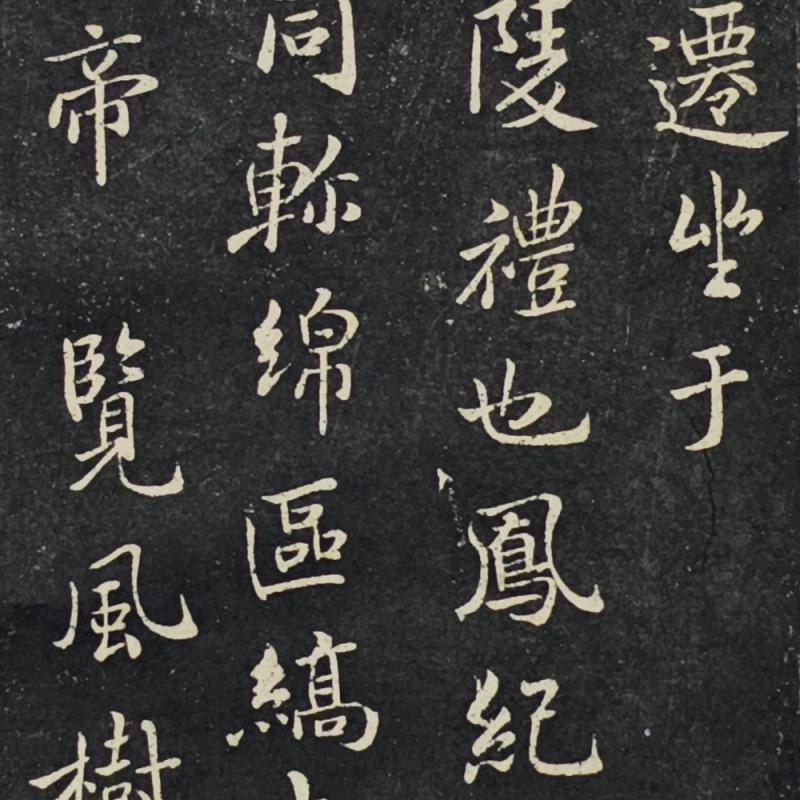 遷坐于
陵禮也鳳紀
同軫綿區縞
帝 覽風樹